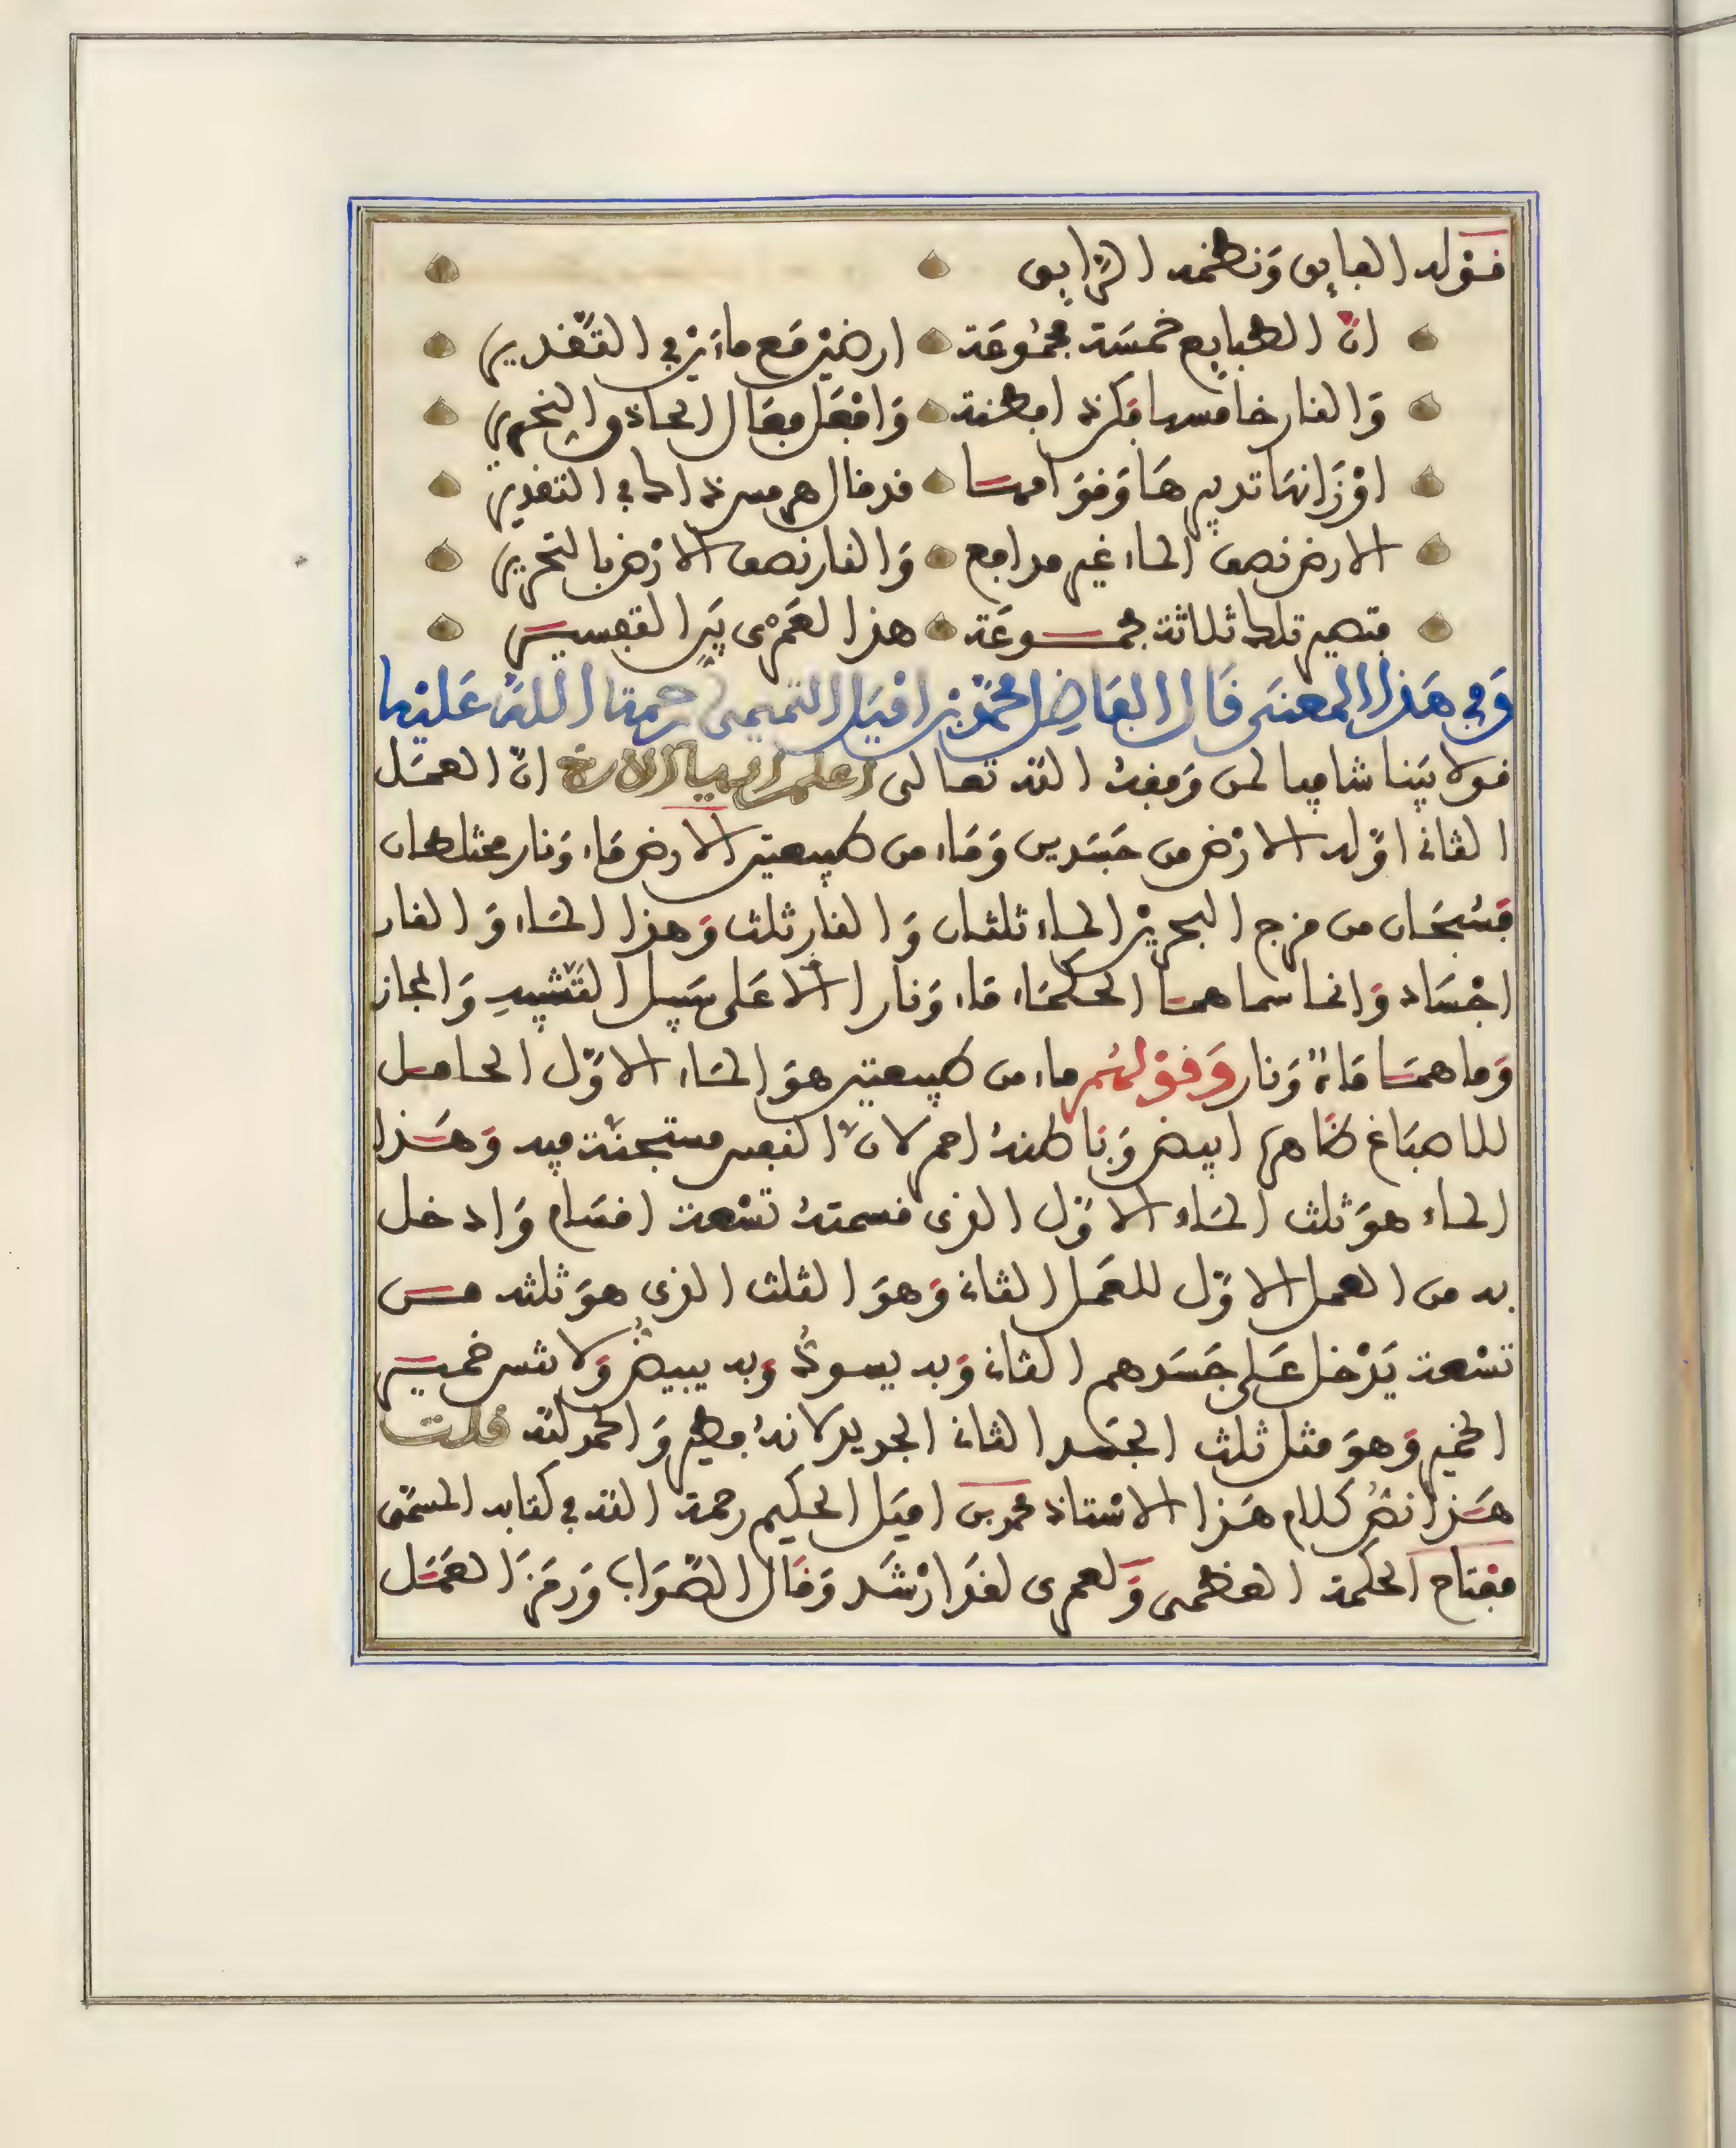 قوله الفايق ونظمه الرايق
ان الطبايع خمسة مجموعة ارضين مع ماءين في التقدير
والنار خامسها فكن ذا فطنة وافعل فعال الحاذق النحرير
اوزانها تدبيرها وقوامها قد قال هرمس ذاك في التقدير
الارض نصف الماء غير مدافع والنار نصف الارض بالتحرير
فتصير تلك ثلاثة مجموعة هذا لعمري بين التفسير
وفي هذا المعنى قال الفاضل محمد بن اميل التميمي رحمة الله عليه
قولا بينا شافيا لمن وفقه الله تعالى اعلم ايها الاخ ان العمل
الثاني اوله الارض من جسدين وماء من طبيعتين الارض ماء ونار مختلطان
فسبحان من مزج البحرين الماء ثلثان والنار ثلث وهذا الماء والنار
اجساد وانما سماهما الحكماء ماء ونارا الا على سبيل التشبيه والمجاز
وما هما ماء ونار وقولهم ماء من طبيعتين هو الماء الاول الحامل
للاصباغ ظاهره ابيض وباطنه احمر لان النفس مستجنة فيه وهذا
الماء هو ثلث الماء الاول الذي قسمته تسعة اقسام وادخل
به من العمل الاول للعمل الثاني وهو الثلث الذي هو ثلثه من
تسعة يدخل على جسدهم الثاني وبه يسود وبه يبيض ولا تنس خمير
الخمير وهو مثل ثلث الجسد الثاني الجديد لانه فطير والحمد لله قلت
هذا نص كلام هذا الاستاذ محمد بن اميل الحكيم رحمة الله في كتابه المسمى
مفتاح الحكمة العظمى ولعمري لقد ارشد وقال الصواب ورمز العمل